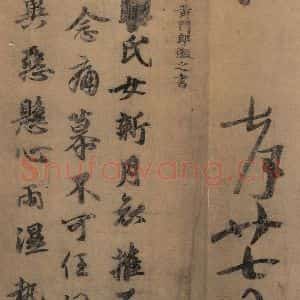 七月廿七
黃門郎徽之書
氏女新月哀摧不
念痛慕不可任
異惡懸心雨濕熱
Shufawang.cn